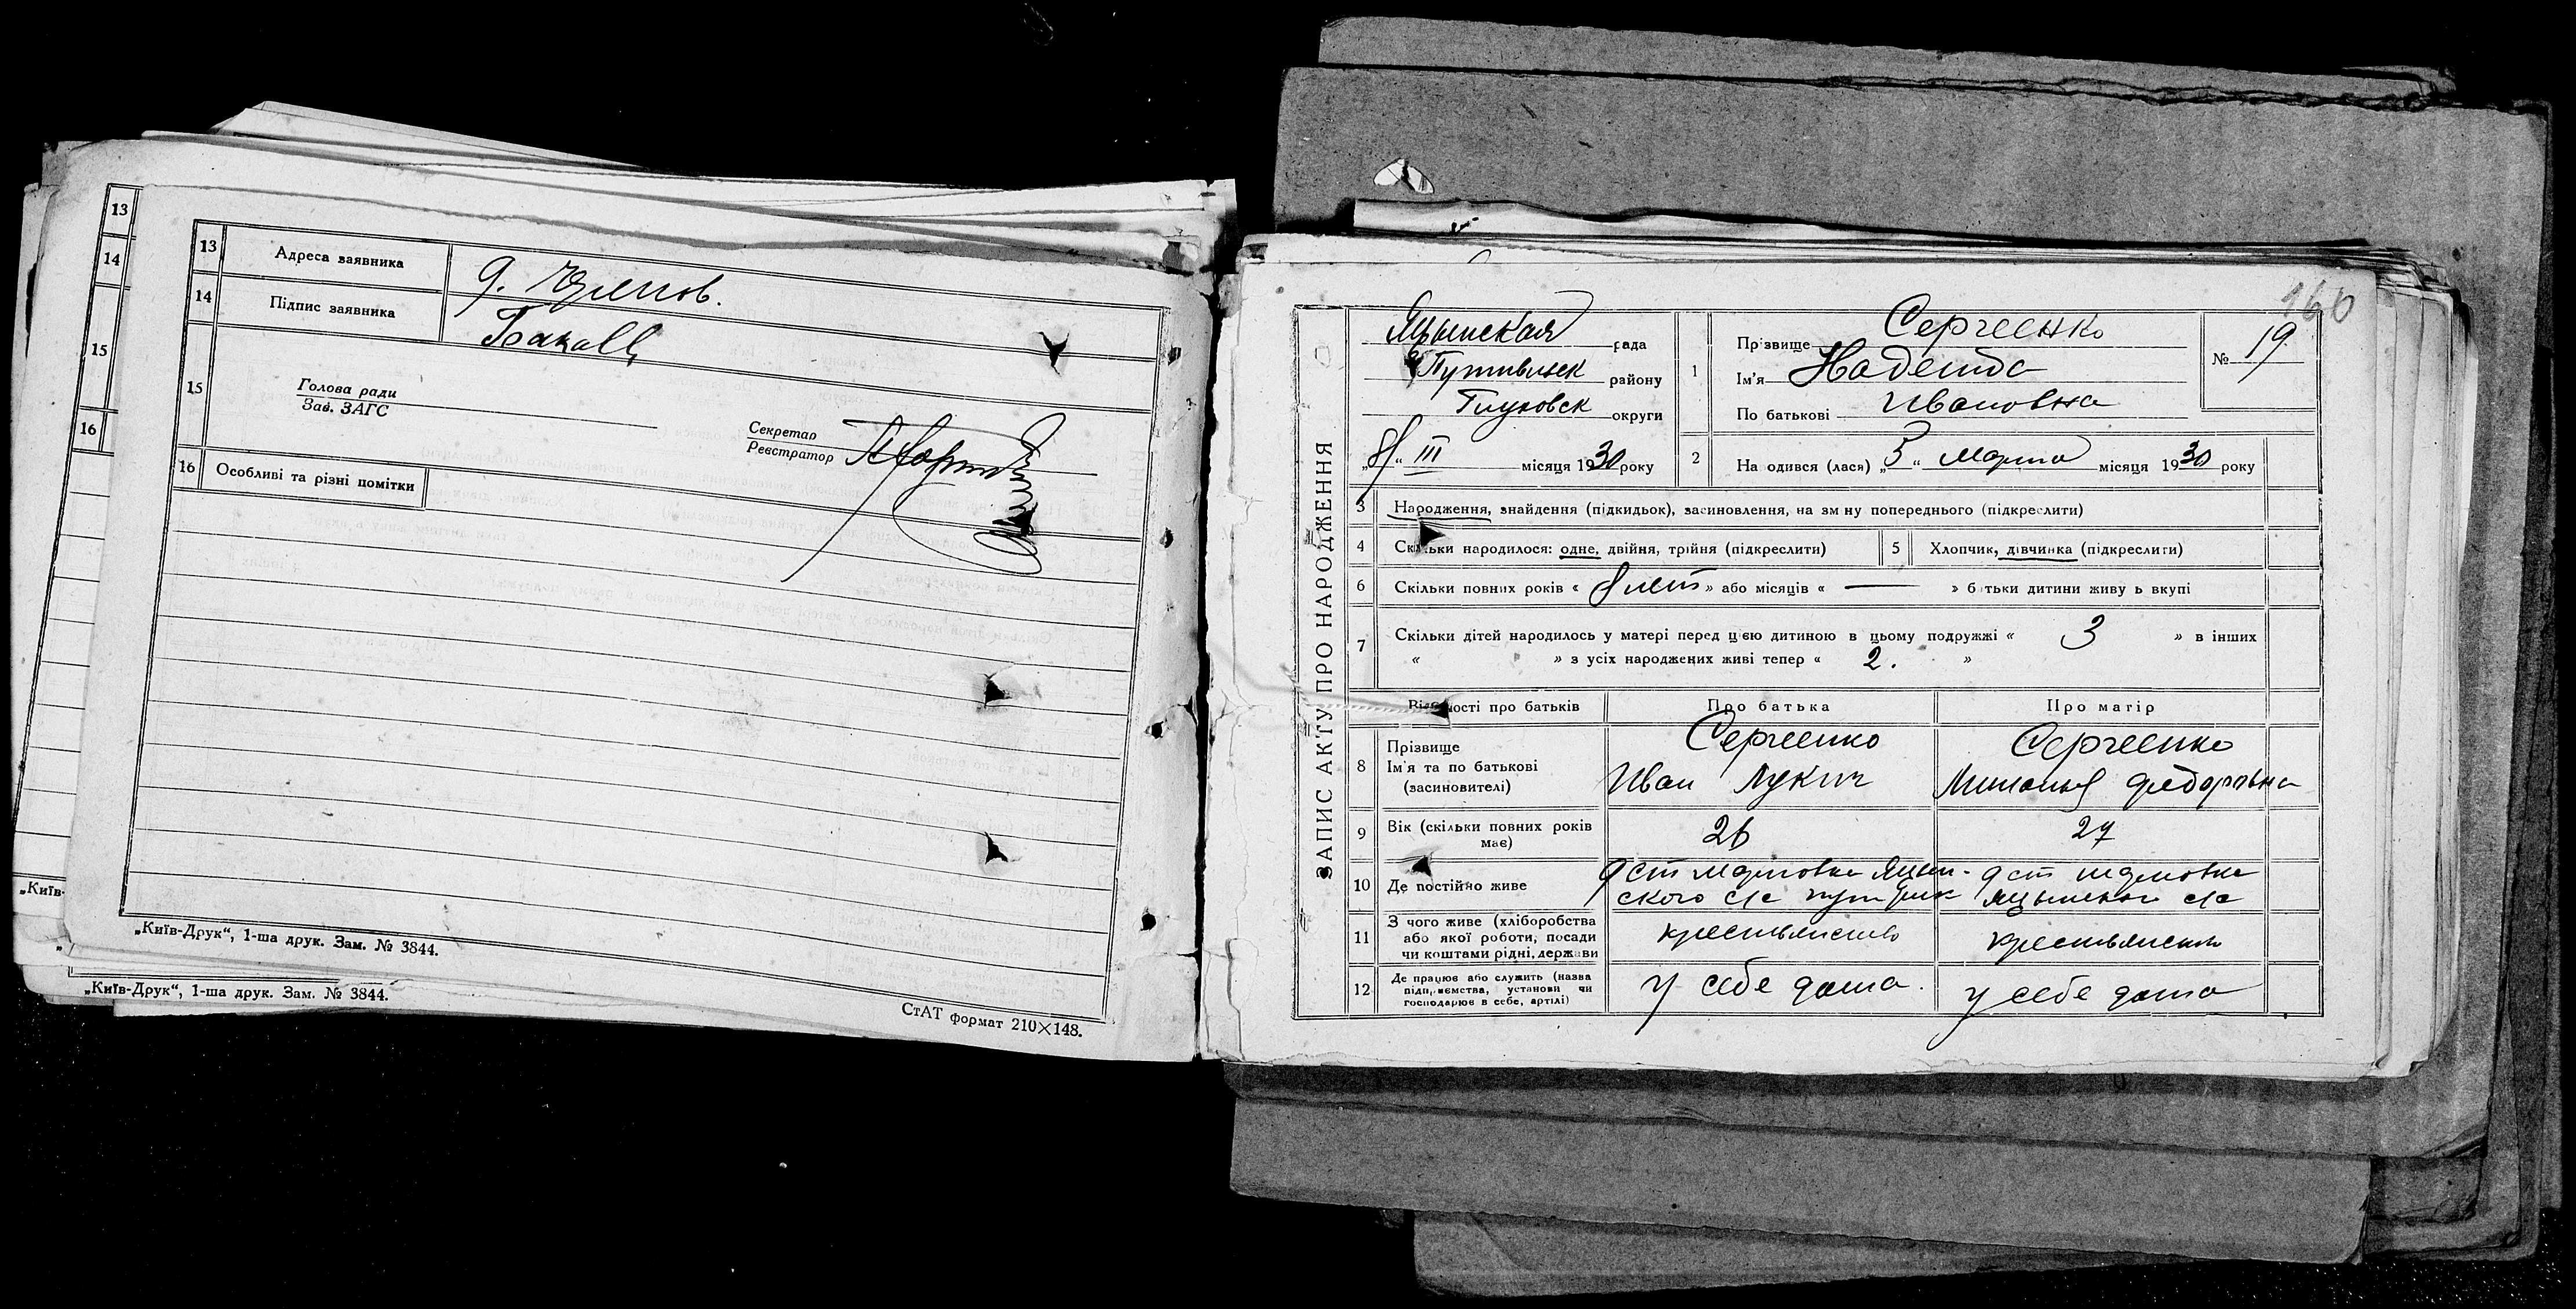 13
14
15
16
„Київ-
13 Адреса заявника д.
14 Підпис заявника
15 Голова ради
Зав. ЗАГС
Секретар
Реєстратор
16 Особливі та різні помітки
„Київ-Друк“, 1-ша друк. Зам. № 3844.
„Київ-Друк“, 1-ша друк. Зам. № 3844.
СтАТ формат 210×148.
160
ЗАПИС АКТУ ПРО НАРОДЖЕННЯ
Яцынская рада
Путивльск району
Глуховск округи
„8“ III місяця 1930 року
1 Прізвище Сергеенко
Ім'я Надежда
По батькові Ивановна
№ 19
2 На одився (лася) „5“ Марта місяця 1930 року
3 Народження, знайдення (підкидьок), засиновлення, на зм ну попереднього (підкреслити)
4 Скільки народилося: одне, двійня, трійня (підкреслити)
5 Хлопчик, дівчинка (підкреслити)
6 Скільки повних років « 8 лет » або місяців « — » б тьки дитини живу ь вкупі
7 Скільки дітей народилось у матері перед цією дитиною в цьому подружжі « 3 » в інших
« » з усіх народжених живі тепер « 2. »
Відомості про батьків Про батька Про матір
8 Прізвище
Ім'я та по батькові
(засиновителі)
Сергеенко
Иван Лукич
Сергеенко
Миланья Федоровна
9 Вік (скільки повних років
має)
26
27
10 Де постійно живе
ского с/с
с/с
11 З чого живе (хліборобства
або якої роботи, посади
чи коштами рідні, держави
крестьянство
крестьянство
12 Де працює або служить (назва
підприємства, установи чи
господарює в себе, артілі)
у себе дома.
у себе дома